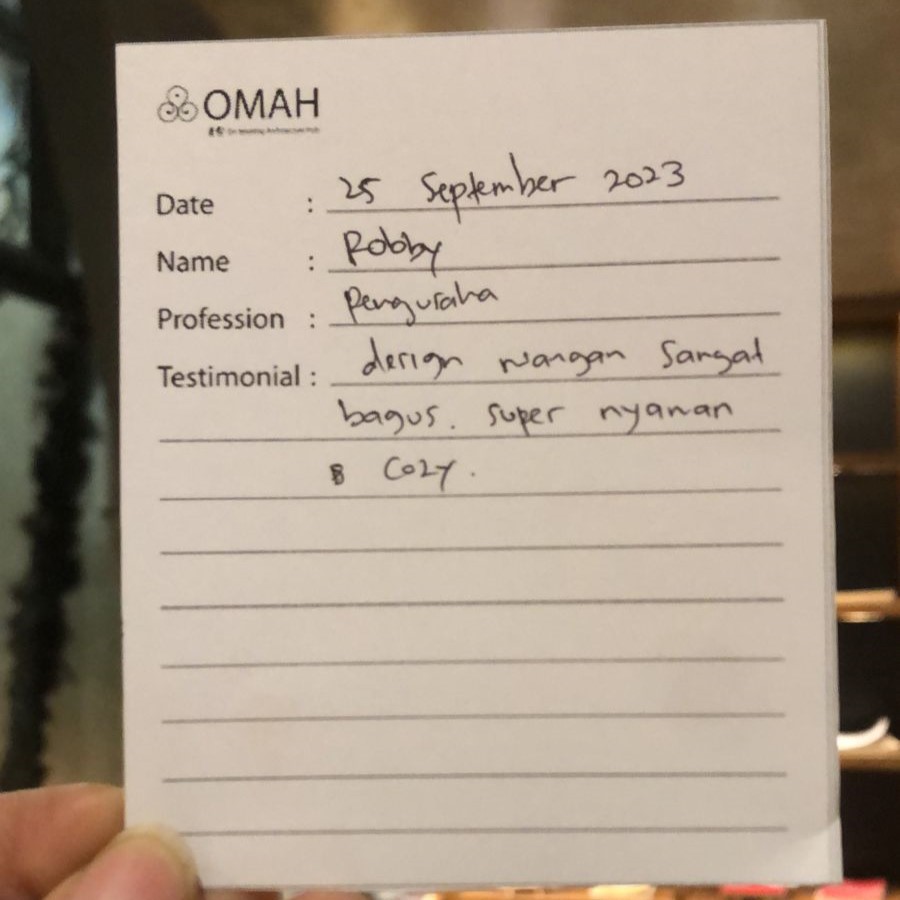 OMAH
Date : 25 September 2023
Name : Robby
Profession : Pengusaha
Testimonial : design ruangan sangat
bagus. super nyaman
& cozy.